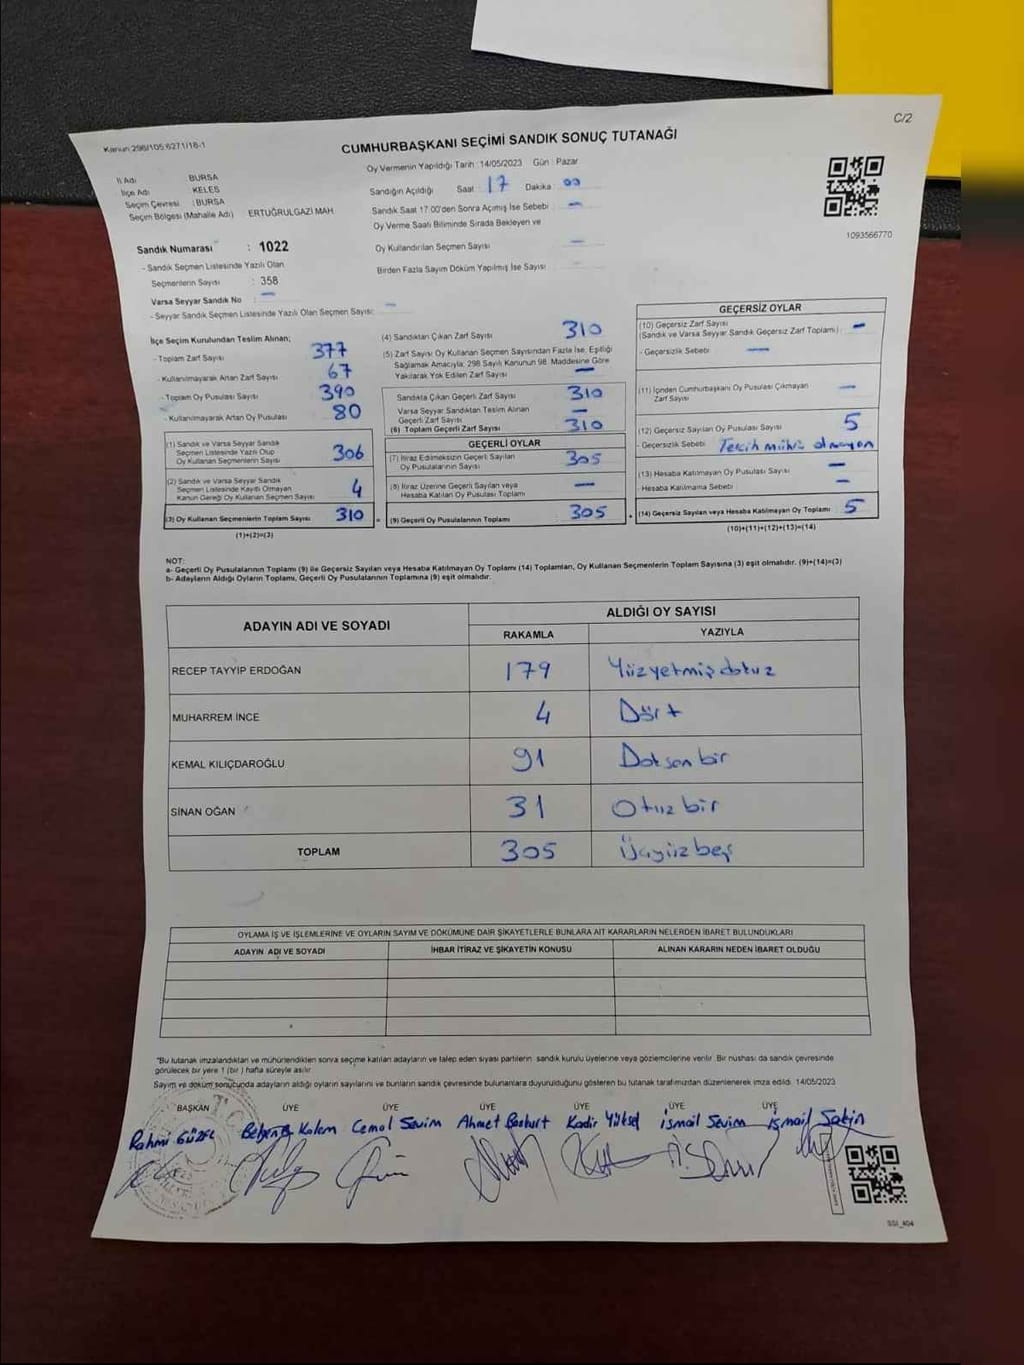 C/2
Kanun:298/105;6271/18-1
CUMHURBAŞKANI SEÇİMİ SANDIK SONUÇ TUTANAĞI
Oy Vermenin Yapıldığı Tarih : 14/05/2023 Gün : Pazar
İl Adı BURSA
İlçe Adı KELES
Seçim Çevresi : BURSA
Seçim Bölgesi (Mahalle Adı) ERTUĞRULGAZİ MAH
Sandığın Açıldığı Saat : 17 Dakika :
Sandık Saat 17:00'den Sonra Açılmış İse Sebebi : —
Oy Verme Saati Bitiminde Sırada Bekleyen ve
Oy Kullandırılan Seçmen Sayısı —
Birden Fazla Sayım Döküm Yapılmış İse Sayısı :
1093566770
Sandık Numarası : 1022
- Sandık Seçmen Listesinde Yazılı Olan
Seçmenlerin Sayısı : 358
Varsa Seyyar Sandık No : —
- Seyyar Sandık Seçmen Listesinde Yazılı Olan Seçmen Sayısı: —
İlçe Seçim Kurulundan Teslim Alınan;
- Toplam Zarf Sayısı 377
- Kullanılmayarak Artan Zarf Sayısı 67
- Toplam Oy Pusulası Sayısı 390
- Kullanılmayarak Artan Oy Pusulası 80
(1) Sandık ve Varsa Seyyar Sandık
Seçmen Listesinde Yazılı Olup
Oy Kullanan Seçmenlerin Sayısı 306
(2) Sandık ve Varsa Seyyar Sandık
Seçmen Listesinde Kayıtlı Olmayan
Kanun Gereği Oy Kullanan Seçmen Sayısı 4
(3) Oy Kullanan Seçmenlerin Toplam Sayısı 310
(1)+(2)=(3)
(4) Sandıktan Çıkan Zarf Sayısı 310
(5) Zarf Sayısı Oy Kullanan Seçmen Sayısından Fazla İse, Eşitliği
Sağlamak Amacıyla; 298 Sayılı Kanunun 98. Maddesine Göre
Yakılarak Yok Edilen Zarf Sayısı —
Sandıkta Çıkan Geçerli Zarf Sayısı 310
Varsa Seyyar Sandıktan Teslim Alınan
Geçerli Zarf Sayısı —
(6) Toplam Geçerli Zarf Sayısı 310
GEÇERLİ OYLAR
(7) İtiraz Edilmeksizin Geçerli Sayılan
Oy Pusulalarının Sayısı 305
(8) İtiraz Üzerine Geçerli Sayılan veya
Hesaba Katılan Oy Pusulası Toplamı —
= (9) Geçerli Oy Pusulalarının Toplamı 305
GEÇERSİZ OYLAR
(10) Geçersiz Zarf Sayısı
(Sandık ve Varsa Seyyar Sandık Geçersiz Zarf Toplamı) : —
- Geçersizlik Sebebi : —
(11) İçinden Cumhurbaşkanı Oy Pusulası Çıkmayan
Zarf Sayısı —
(12) Geçersiz Sayılan Oy Pusulası Sayısı 5
- Geçersizlik Sebebi : Tercih mührü olmayan
(13) Hesaba Katılmayan Oy Pusulası Sayısı —
- Hesaba Katılmama Sebebi : —
+ (14) Geçersiz Sayılan veya Hesaba Katılmayan Oy Toplamı 5
(10)+(11)+(12)+(13)=(14)
NOT:
a- Geçerli Oy Pusulalarının Toplamı (9) ile Geçersiz Sayılan veya Hesaba Katılmayan Oy Toplamı (14) Toplamları, Oy Kullanan Seçmenlerin Toplam Sayısına (3) eşit olmalıdır. (9)+(14)=(3)
b- Adayların Aldığı Oyların Toplamı, Geçerli Oy Pusulalarının Toplamına (9) eşit olmalıdır.
ADAYIN ADI VE SOYADI ALDIĞI OY SAYISI
RAKAMLA YAZIYLA
RECEP TAYYİP ERDOĞAN 179 Yüzyetmişdokuz
MUHARREM İNCE 4 Dört
KEMAL KILIÇDAROĞLU 91 Doksan bir
SİNAN OĞAN 31 Otuz bir
TOPLAM 305 Üçyüz beş
OYLAMA İŞ VE İŞLEMLERİNE VE OYLARIN SAYIM VE DÖKÜMÜNE DAİR ŞİKAYETLERLE BUNLARA AİT KARARLARIN NELERDEN İBARET BULUNDUKLARI
ADAYIN ADI VE SOYADI İHBAR İTİRAZ VE ŞİKAYETİN KONUSU ALINAN KARARIN NEDEN İBARET OLDUĞU
*Bu tutanak imzalandıktan ve mühürlendikten sonra seçime katılan adayların ve talep eden siyasi partilerin sandık kurulu üyelerine veya gözlemcilerine verilir. Bir nüshası da sandık çevresinde
görülecek bir yere 1 (bir) hafta süreyle asılır.
Sayım ve döküm sonucunda adayların aldığı oyların sayılarını ve bunların sandık çevresinde bulunanlara duyurulduğunu gösteren bu tutanak tarafımızdan düzenlenerek imza edildi. 14/05/2023
BAŞKAN ÜYE ÜYE ÜYE ÜYE ÜYE ÜYE
Rahmi GÜZEL Kalem Cemal Sevim Ahmet Bozkurt Kadir Yüksel İsmail Sevim İsmail
SSI_404